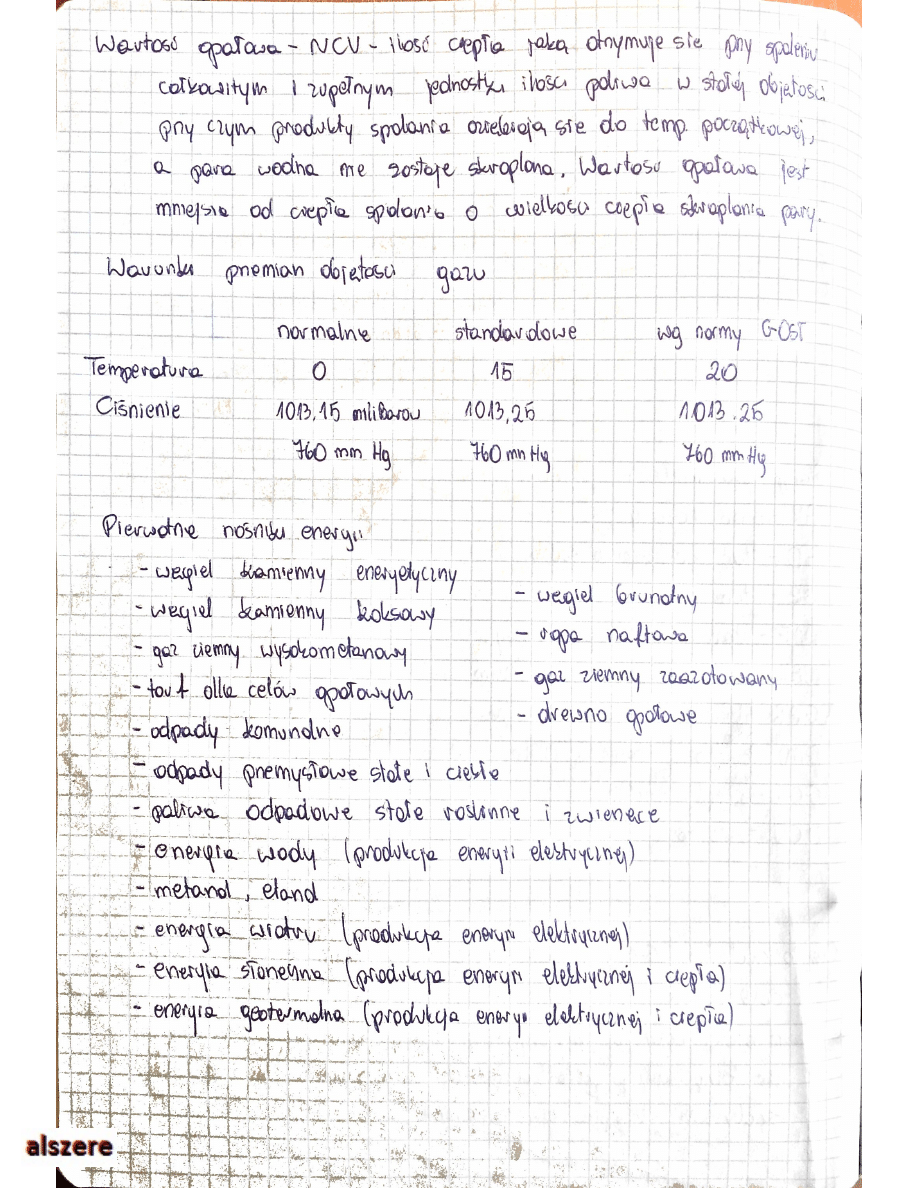 Wartość opałowa - NCV - ilość ciepła jaką otrzymuje się przy spaleniu
całkowitym i zupełnym jednostki ilości paliwa w stałej objętości
przy czym produkty spalania oziebiają się do temp. początkowej,
a para wodna nie zostaje skroplona. Wartość opałowa jest
mniejsza od ciepła spalania o wielkość ciepła skraplania pary.
Warunki przemian objętości gazu
normalne standardowe wg normy GOST
Temperatura 0 15 20
Ciśnienie 1013,15 milibarów 1013,25 1013.25
760 mm Hg 760 mm Hg 760 mm Hg
Pierwotne nośniki energii
- węgiel kamienny energetyczny
- węgiel kamienny koksowy
- gaz ziemny wysokometanowy
- torf dla celów opałowych
- odpady komunalne
- węgiel brunatny
- ropa naftowa
- gaz ziemny zaazotowany
- drewno opałowe
- odpady przemysłowe stałe i ciekłe
- paliwa odpadowe stałe roślinne i zwierzęce
- energia wody (produkcja energii elektrycznej)
- metanol, etanol
- energia wiatru (produkcja energii elektrycznej)
- energia słoneczna (produkcja energii elektrycznej i ciepła)
- energia geotermalna (produkcja energii elektrycznej i ciepła)
alszere